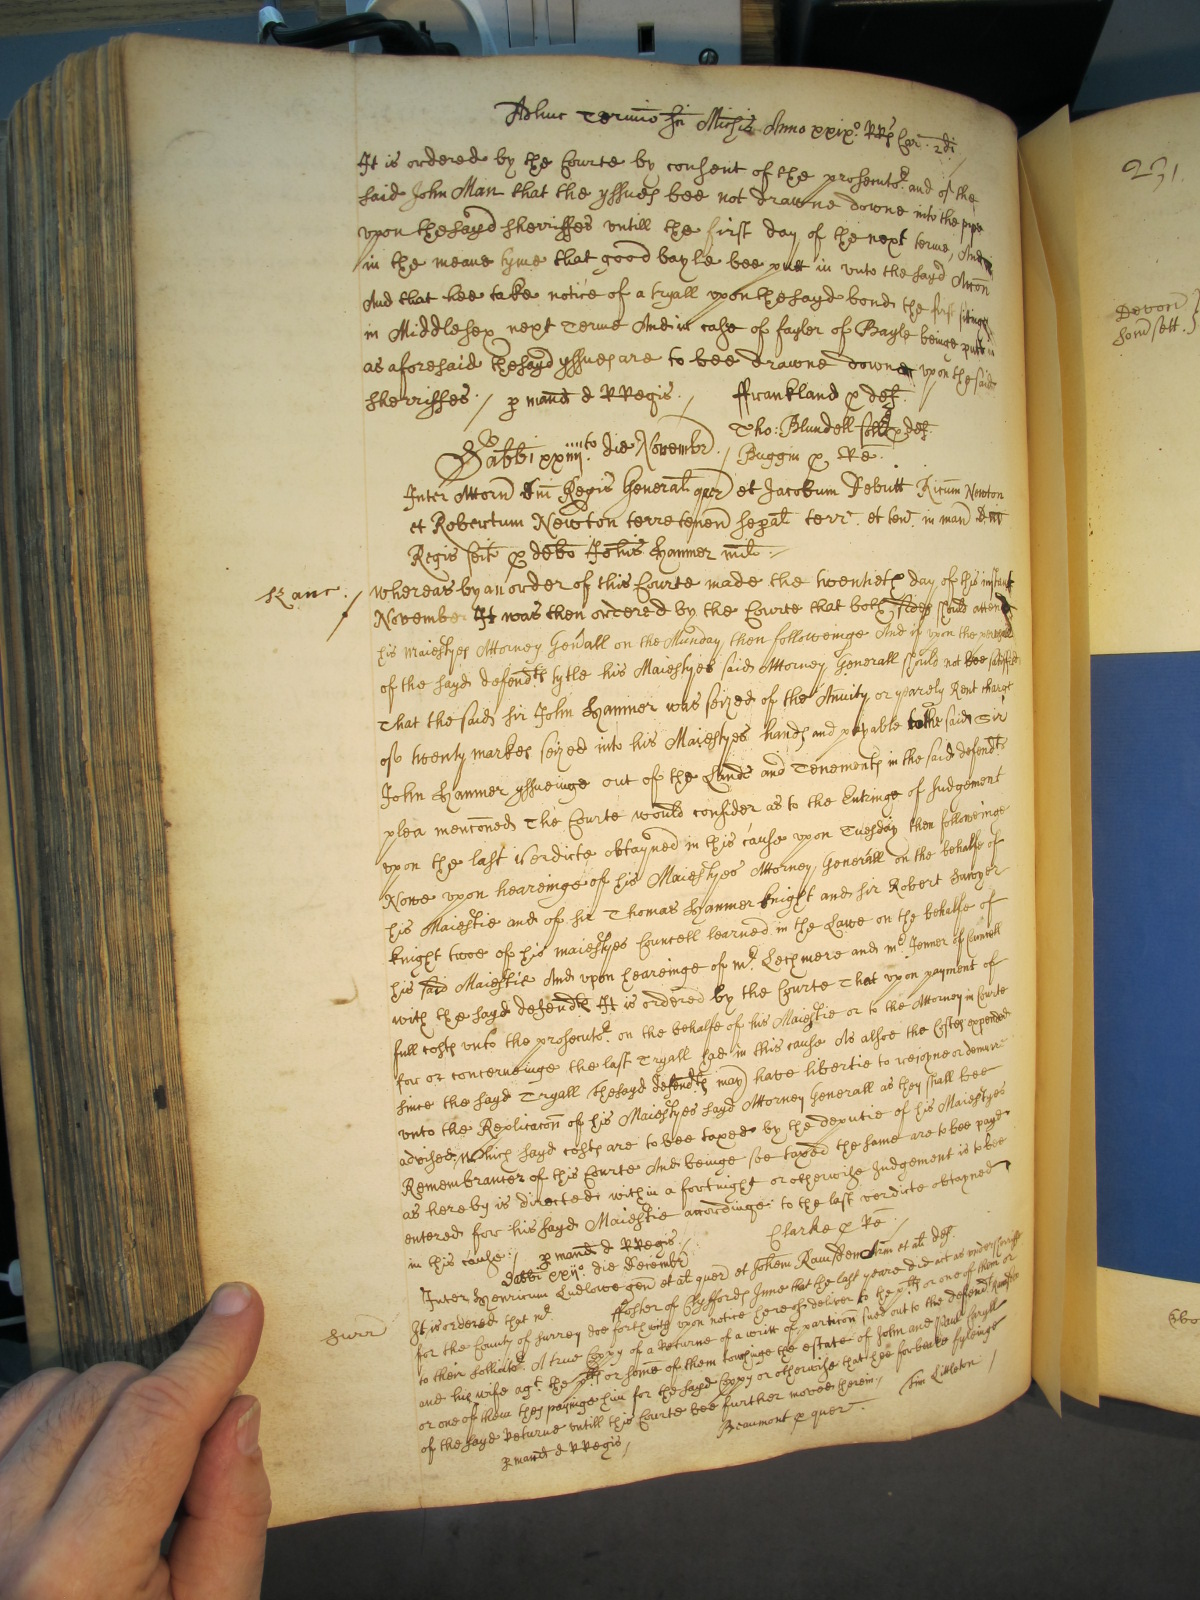 Adhuc Termio Sci Michis Anno xxixo. RRs Car. 2di
It is ordered by the Courte by consent of the prosecutor. and of the
said John Man that the yssues bee not drawne downe into the pipe
vpon the sayd sherriffes vntill the first day of the next terme, And
in the meane tyme that good bayle bee putt in vnto the sayd Accon
And that hee take notice of a tryall vpon the sayd bond the first sitinge
in Middlesex next Terme And in case of fayler of Bayle beinge putt in
as aforesaid the sayd yssues are to bee drawne downe vpon the said
sherriffes. / p mand d RRegis. / ffrankland p def.
Tho: Blundell soll p def.
Sabbi xxiiiito. die Novembr. / Buggin p Re.
Inter Attorn Dni Regis Generall quer et Jacobum Dewitt Ricum Newton
et Robertum Newton terretenen sepal terr. et ten. in man Dni
Regis seit p debo Johis Hanmer mil. /
Kanc. / Whereas by an order of this Courte made the twentieth day of this instant
November It was then ordered by the Courte that both sides should attend
his Maiestyes Attorney Gen'all on the Munday then followeinge And if vpon the perusall
of the sayd defendts tytle his Maiestyes said Attorney Generall should not bee satisfied
That the said Sir John Hanmer was seized of the Anuity or yearely Rent charge
of twenty markes seized into his Maiestyes hands and payable to the said Sir
John Hanmer yssueinge out of the Lands and Tenements in the said defendts
plea menconed The Courte would consider as to the Entringe of Judgement
vpon the last verdicte obtayned in this cause vpon Tuesday then followeinge
Nowe vpon heareinge of his Maiestyes Attorney Generall on the behalfe of
his Maiestie and of Sir Thomas Hanmer knight and Sir Robert Sawyer
knight twoe of his maiestyes Councell learned in the Lawe on the behalfe of
his said Maiestie And vpon heareinge of mr. Lechmere and mr. Jenner of Councell
with the sayd defendts It is ordered by the Courte That vpon payment of
full costs vnto the prosecutor. on the behalfe of his Maiestie or to the Attorney in Courte
for or concerneinge the last Tryall had in this cause As alsoe the Costes expended
since the sayd Tryall the sayd defendts may have libertie to rejoyne or demurre
vnto the Replicacon of his Maiestyes sayd Attorney Generall as they shall bee
advised, Which sayd costs are to bee taxed by the deputie of his Maiestyes
Remembrancer of this Courte And beinge soe taxed the same are to bee payd
as hereby is directed within a fortnight or otherwise Judgement is to bee
entered for his sayd Maiestie accordinge to the last verdicte obtayned
in this cause. / p mand d RRegis. / Clarke p Re. /
Sabbi xxijo. die Decembr
Inter Henricum Ludlowe gen et al quer et Johem Ramsden Arm et al def.
Surr It is ordered that mr. ffoster of Clyffords Inne that the last yeare did act as vndersherriffe
for the County of Surrey doe forthwith vpon notice hereof deliver to the plts or one of them or
to their sollicitor A true Coppy of a Returne of a writt of particon sued out to the defendt Ramsden
and his wife agt. the plts or some of them touchinge the estate of John and Paul Caryll
or one of them they payinge him for the sayd Coppy or otherwise that hee forbeare fyleinge
of the sayd Returne vntill this Courte bee further moved therein. / Tim Littleton /
p mand d RRegis, / Beaumont p quer.
231.
Devon
Som'sett.